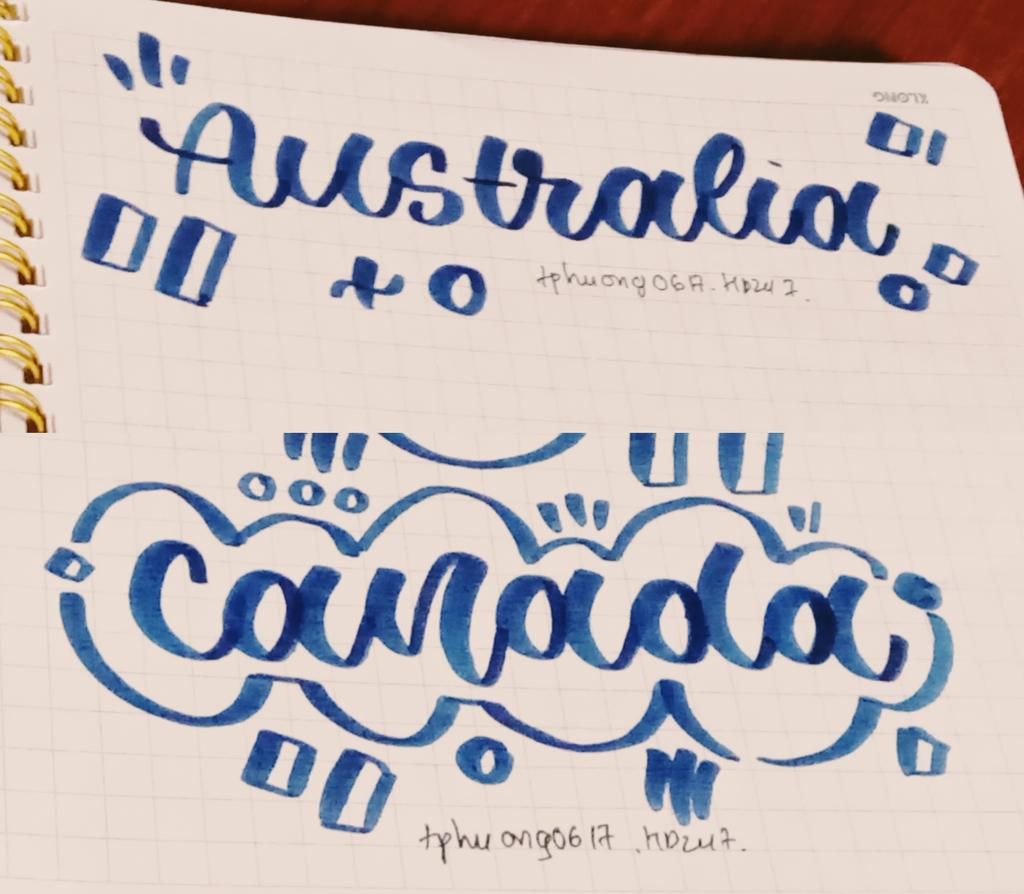 KLONG
Australia
tphuong0617.HD247.
Canada
tphuong0617.HD247.